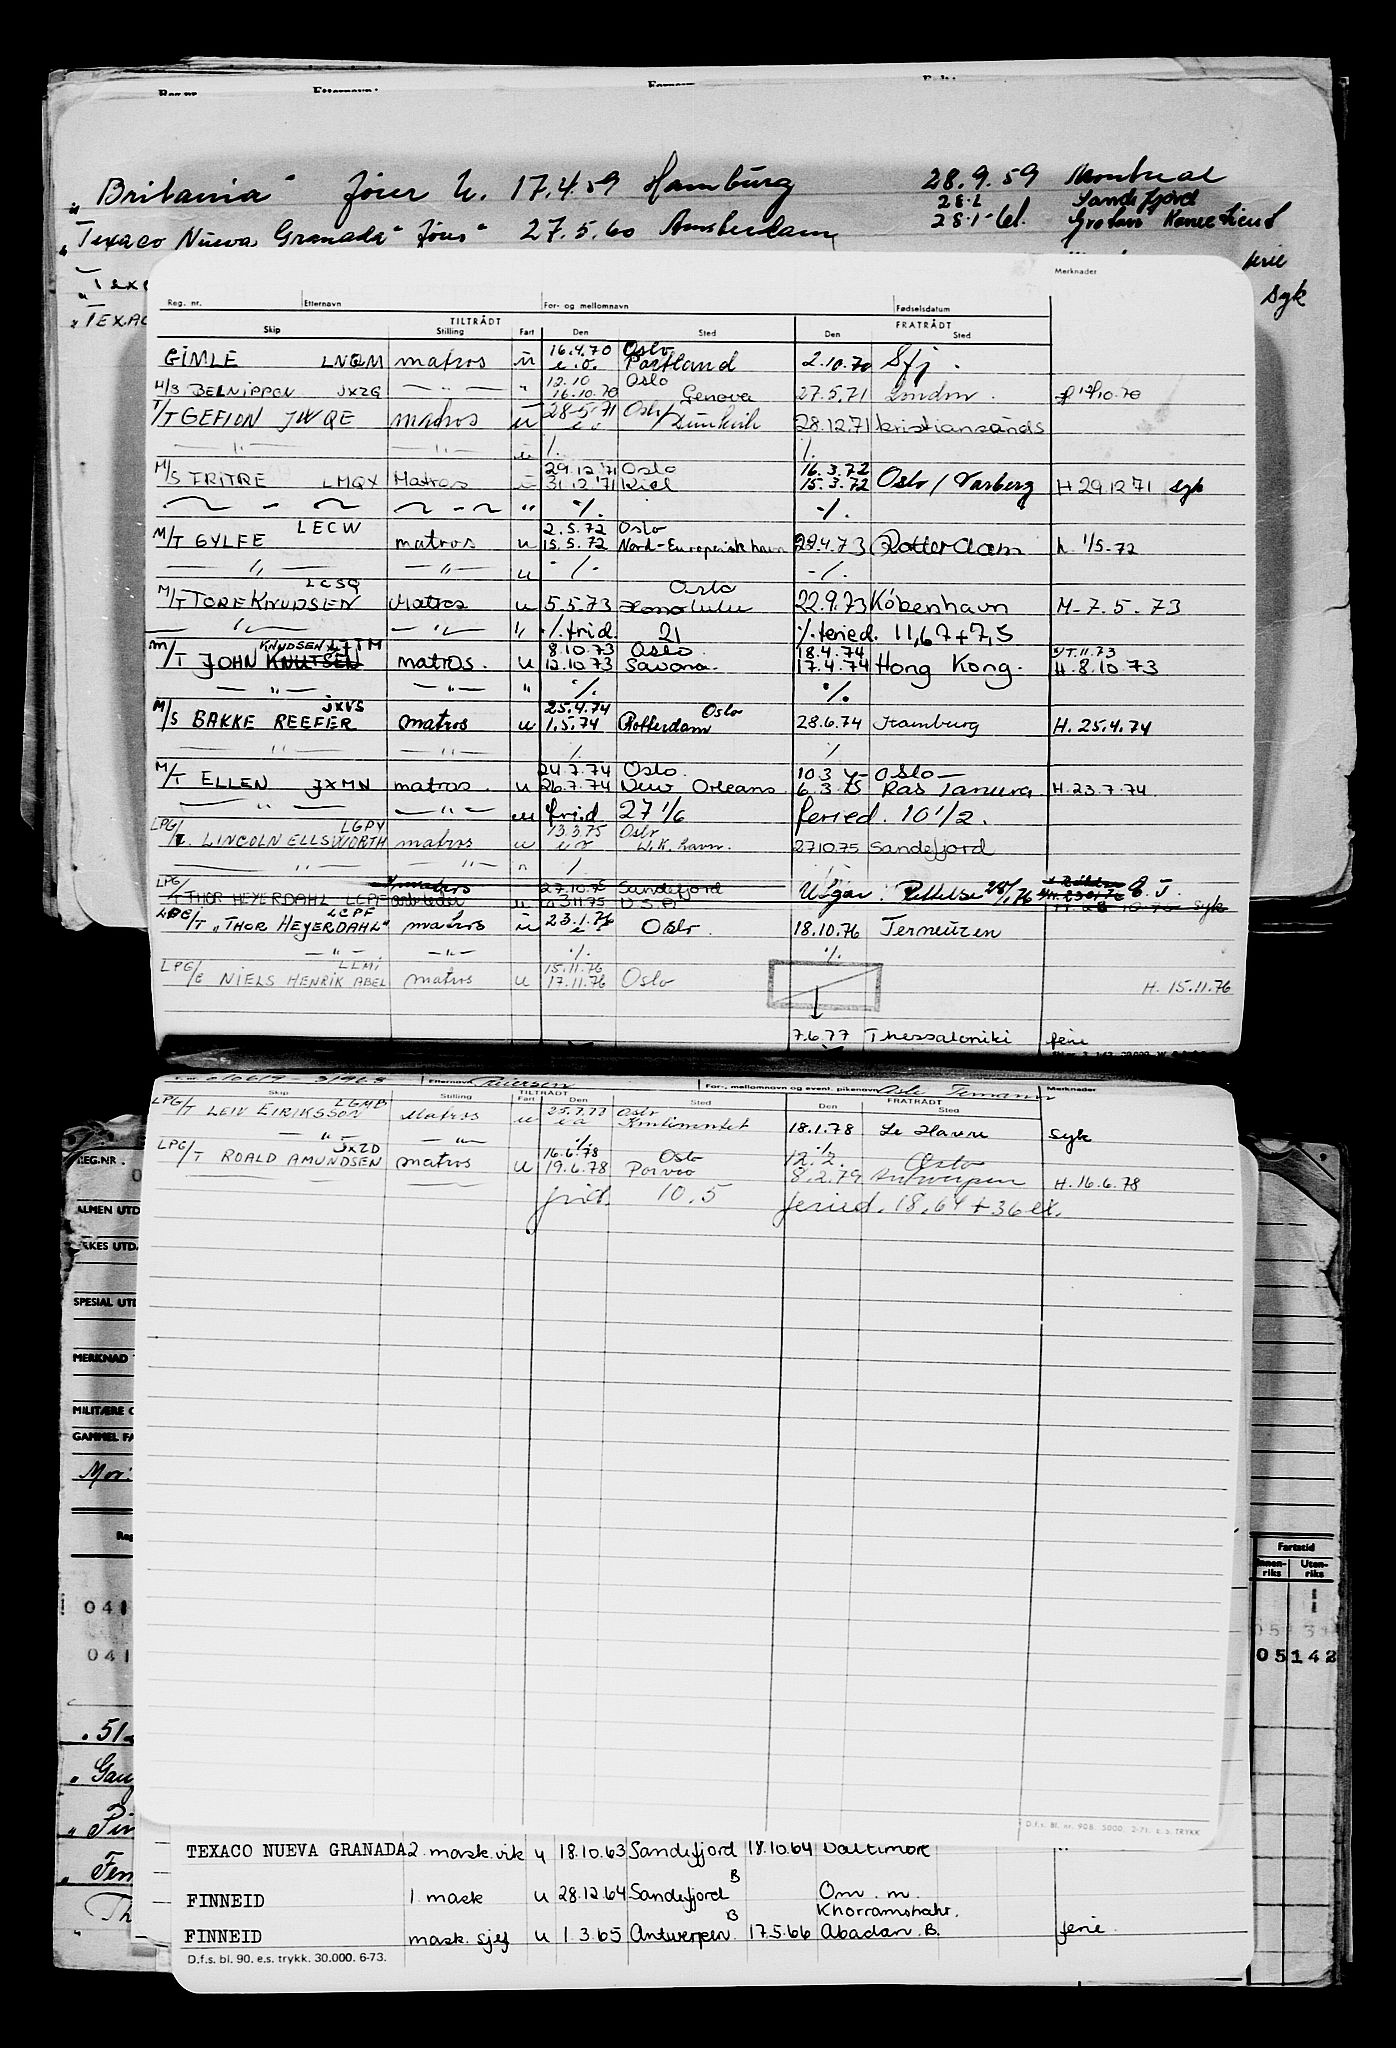 "Britania" fører U. 17.4.59 Hamburg 28.9.59 Montreal
28.2 Sandefjord
"Texaco Nueva Granada" førs" 27.5.60 Amsterdam 28.1-61. Groton
ferie
"Texa syk
"TEXAC
Merknader
Reg. nr. Etternavn For- og mellomnavn Fødselsdatum
TILTRÅDT FRATRÅDT
Skip Stilling Fart Den Sted Den Sted
16.4.70 Oslo
GIMLE LNQM matros u e.o. Portland 2.10.70 Sfj.
12.10 Oslo
M/S BELNIPPON JXZG — " — " 16.10.70 Genova 27.5.71 London.
T/T GEFION JWQE matros u 28-5-71 Oslo/ Dunkirk 28.12.71 kristiansands
— " — — " — u %. %.
29.12.71 Oslo 16.3.72
M/S TRITRE LMQY Matros u 31.12.71 Kiel 15.3.72 Oslo / Varberg H 29.12.71 syk
" %. %.
LECW 2.5.72 Oslo
M/T GYLFE matros u 15.5.72 Nord-Europeisk havn 29.4.73 Rotterdam h. 1/5-72
— " — — " — u %. %.
LCSQ Oslo
M/T TORE KNUDSEN Matros u 5.5.73 Honolulu 22.9.73 København M-7.5.73
— " — — " — " %. frid. 21 %. feried. 11,67+7,5
KNUDSEN LJTM 8.10.73 Oslo. 18.4.74
M/T JOHN KNUTSEN matros. u 12.10.73 Savona. 17.4.74 Hong Kong. H.8.10.73
— " — — " — " %. %.
JXVS 25.4.74 Oslo
M/S BAKKE REEFER matros u 1.5.74 Rotterdam 28.6.74 Hamburg H. 25.4.74
— " — — " — %. %
24.7.74 Oslo. 10.3 Oslo—
M/T ELLEN JXMN matros. u 26.7.74 New Orleans. 6.3.75 Ras Tanura H.23.7.74
— " — — " — u frid 27 1/6 feried. 10 1/2.
LGPY 13.3.75 Oslo
LPG/T. LINCOLN ELLSWORTH matros u U.K. havn. 27.10.75 Sandefjord
— " — " %
LPG/ matros 27.10.75 Sandefjord
T THOR HEYERDAHL LCPF u U S A Utgår. Rettelse 28/1/76 E.J. syk
LCPF
LPG/T "THOR HEYERDAHL" matros u 23.1.76 Oslo. 18.10.76 Terneuzen
— " — — " — %. %.
LLMI 15.11.76
LPG/T NIELS HENRIK ABEL matros u 17.11.76 Oslo H. 15.11.76
7.6.77 Thessaloniki ferie
Etternavn For-, mellomnavn og event. pikenavn Merknader
Skip TILTRÅDT Stilling Fart Den Sted Den FRATRÅDT Sted
LGMB Oslo
LPG/T LEIV EIRIKSSON Matros u Kontinentet 18.1.78 Le Havre syk
— " — — " — %. %.
JXZD 16.6.78 Oslo 12.2. Oslo
LPG/T ROALD AMUNDSEN matros u 19.6.78 Porvoo 8.2.79 Antwerpen H.16.6.78
frid. 10.5 feried. 18,64 + 36
REG.NR.
ALMEN UTD
AKES UTDA
SPESIAL UTD
MERKNAD
MILITÆRE
GAMMEL FA
Mor:
Fartstid
Innen-riks Uten-riks
041
041 05142
.51
" Gau
" Pin
" Fen
" Th
D.f.s. Bl. nr. 90B. 5000. 2-71. e.s. TRYKK
TEXACO NUEVA GRANADA 2. mask.vik u 18.10.63 Sandefjord 18.10.64 Baltimore "
B
FINNEID 1. mask u 28.12.64 Sandefjord Om. m.
Khorramshahr.
B
FINNEID mask. sjef u 1.3.65 Antwerpen. 17.5.66 Abadan. B. ferie.
D.f.s. bl. 90. e.s. trykk. 30.000. 6-73.